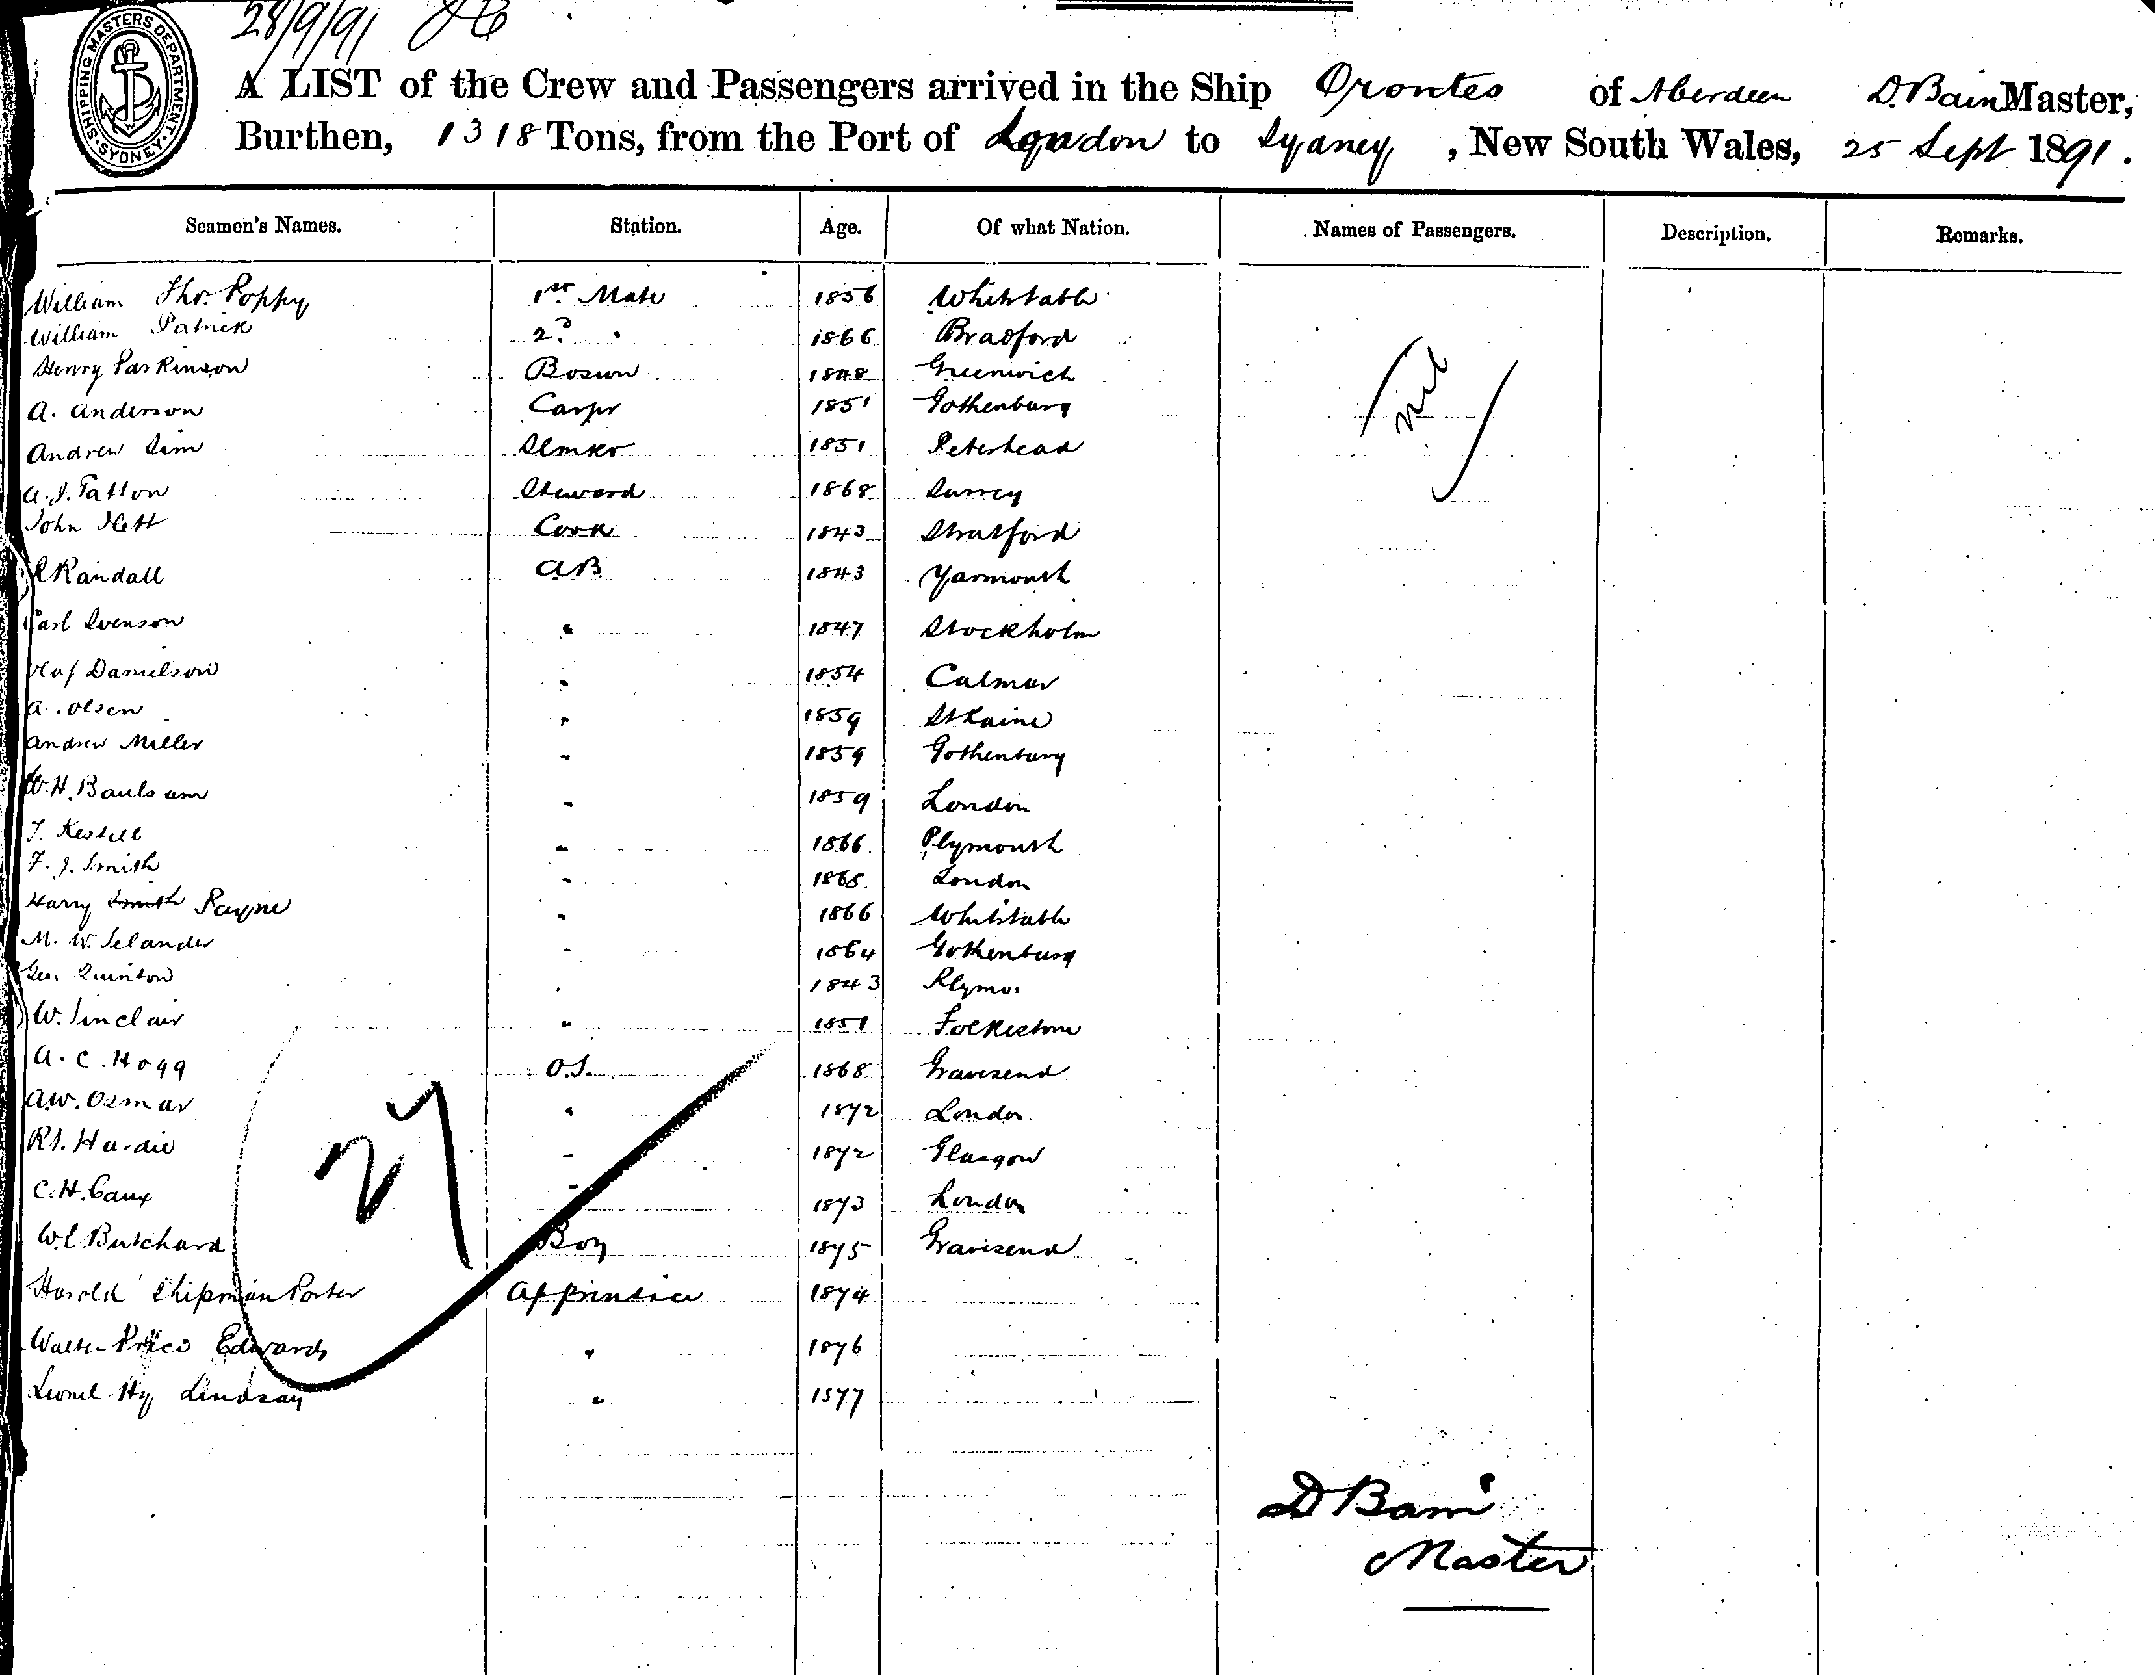 28/9/91
SHIPPING MASTERS DEPARTMENT. SYDNEY.
A LIST of the Crew and Passengers arrived in the Ship Orontes of Aberdeen D. Bain Master,
Burthen, 1318 Tons, from the Port of London to Sydney, New South Wales, 25 Sept 1891.
Seamen's Names. Station. Age. Of what Nation. Names of Passengers. Description. Remarks.
William Thos. Poppy 1st Mate 1856 Whitstable
William Patrick 2d " 1866 Bradford
Henry Parkinson Bosun 1848 Greenwich
nil
A. Anderson Carpr 1851 Gothenburg
Andrew Sim Slmkr 1851 Peterhead
A. J. Tatton Steward 1868 Surrey
John Hett Cook 1843 Stratford
Randall AB 1843 Yarmouth
Carl Svenson " 1847 Stockholm
Olaf Danielson " 1854 Calmar
A. Olsen " 1859
Andrew Miller " 1859 Gothenburg
W. H. " 1859 London
T. Kestell " 1866 Plymouth
F. J. Smith " 1865 London
Harry Smith Payne " 1866 Whitstable
M. W. Selander " 1864 Gothenburg
Geo. Quinton " 1843 Plymo.
W. Sinclair " 1851 Folkestone
A. C. Hogg O.S. 1868 Gravesend
A.W. Osmar " 1872 London
Rt. Hardie " 1872 Glasgow
C. H. Caux " 1873 London
27
W. C. Butchard Boy 1875 Gravesend
Harold Chipman Porter Apprentice 1874
Walter Price Edwards " 1876
Lionel Hy Lindsay " 1877
D Bain
Master